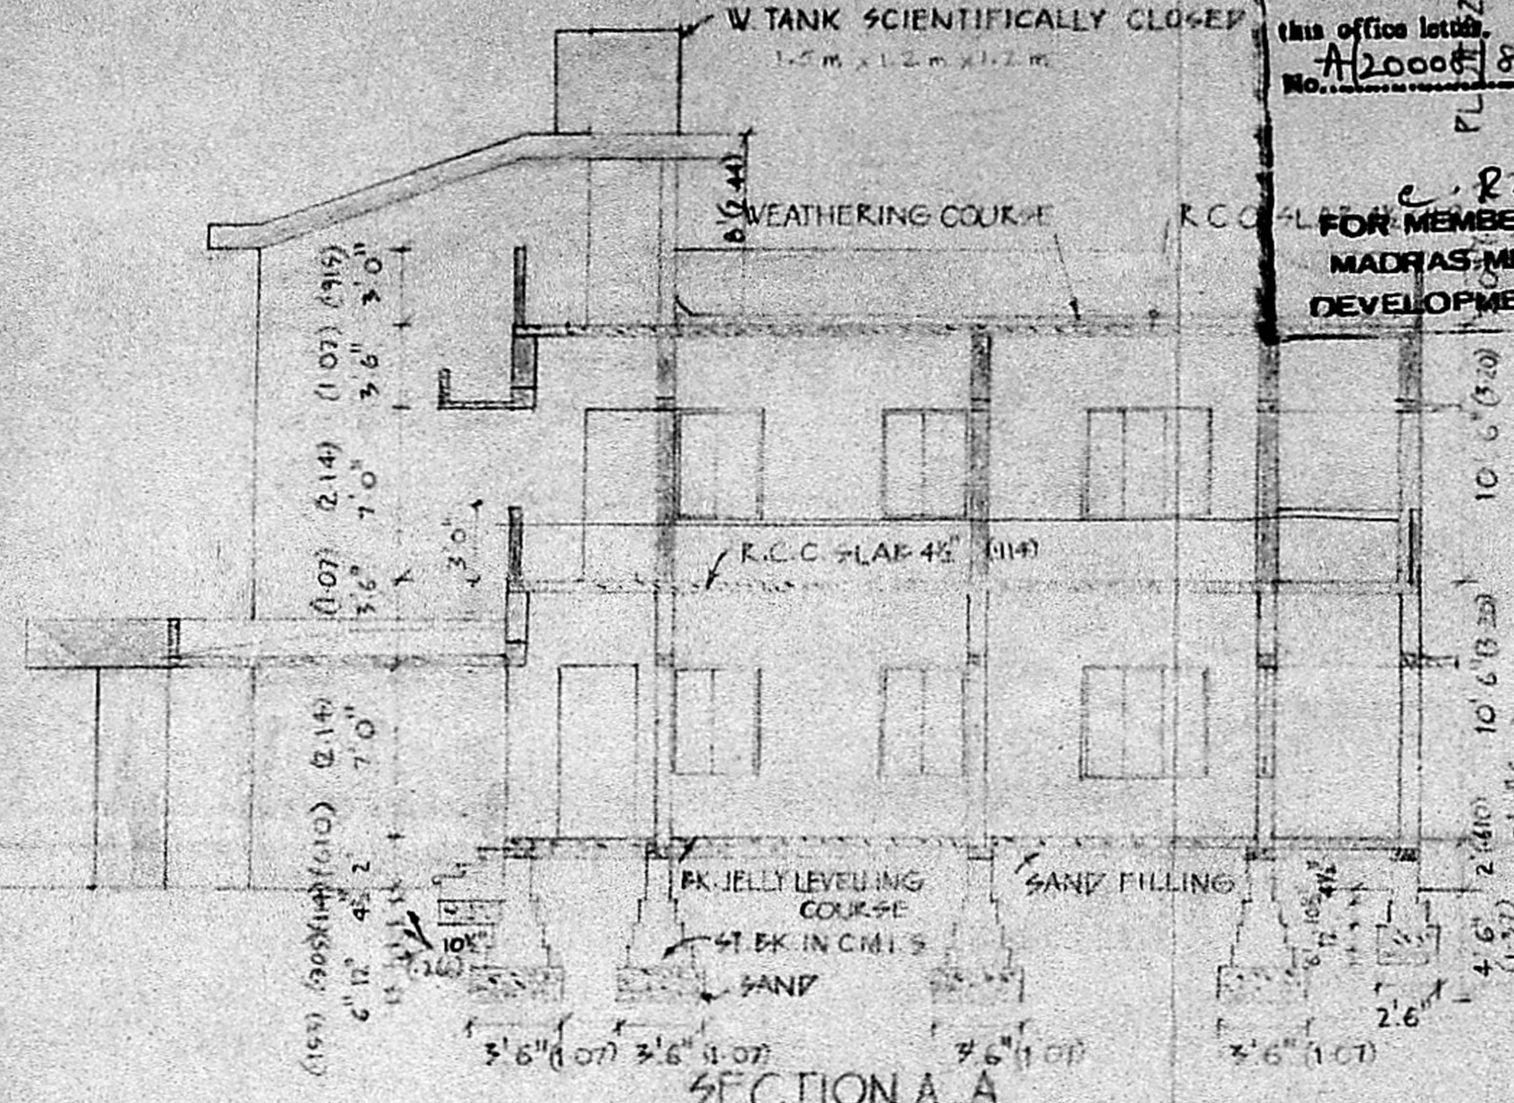 W. TANK SCIENTIFICALLY CLOSED
1.5m x 1.2m x 1.2m
this office letter.
No. A/20008/8
FOR MEMBE
MADRAS ME
DEVELOPME
8'(2.44)
WEATHERING COURSE
R C C SLAB
(.915)
3'0"
(1.07)
3'6"
(2.14)
7'0"
(1.07)
3'6"
3'0"
R.C.C SLAB 4½" (.114)
10'6" (3.20)
10'6" (3.20)
(2.14)
7'0"
(.610)
2'
4½"
(.305)
12"
6"
10½"
BK.JELLY LEVELLING
COURSE
SAND FILLING
ST. BK. IN C.M 1:5
SAND
2'(.610)
4'6"
4½"
10½"
12"
6"
2'6"
3'6" (1.07)
3'6" (1.07)
3'6" (1.07)
3'6" (1.07)
SECTION A.A